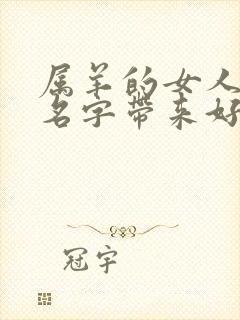 属羊的女人
名字带来好
冠宇